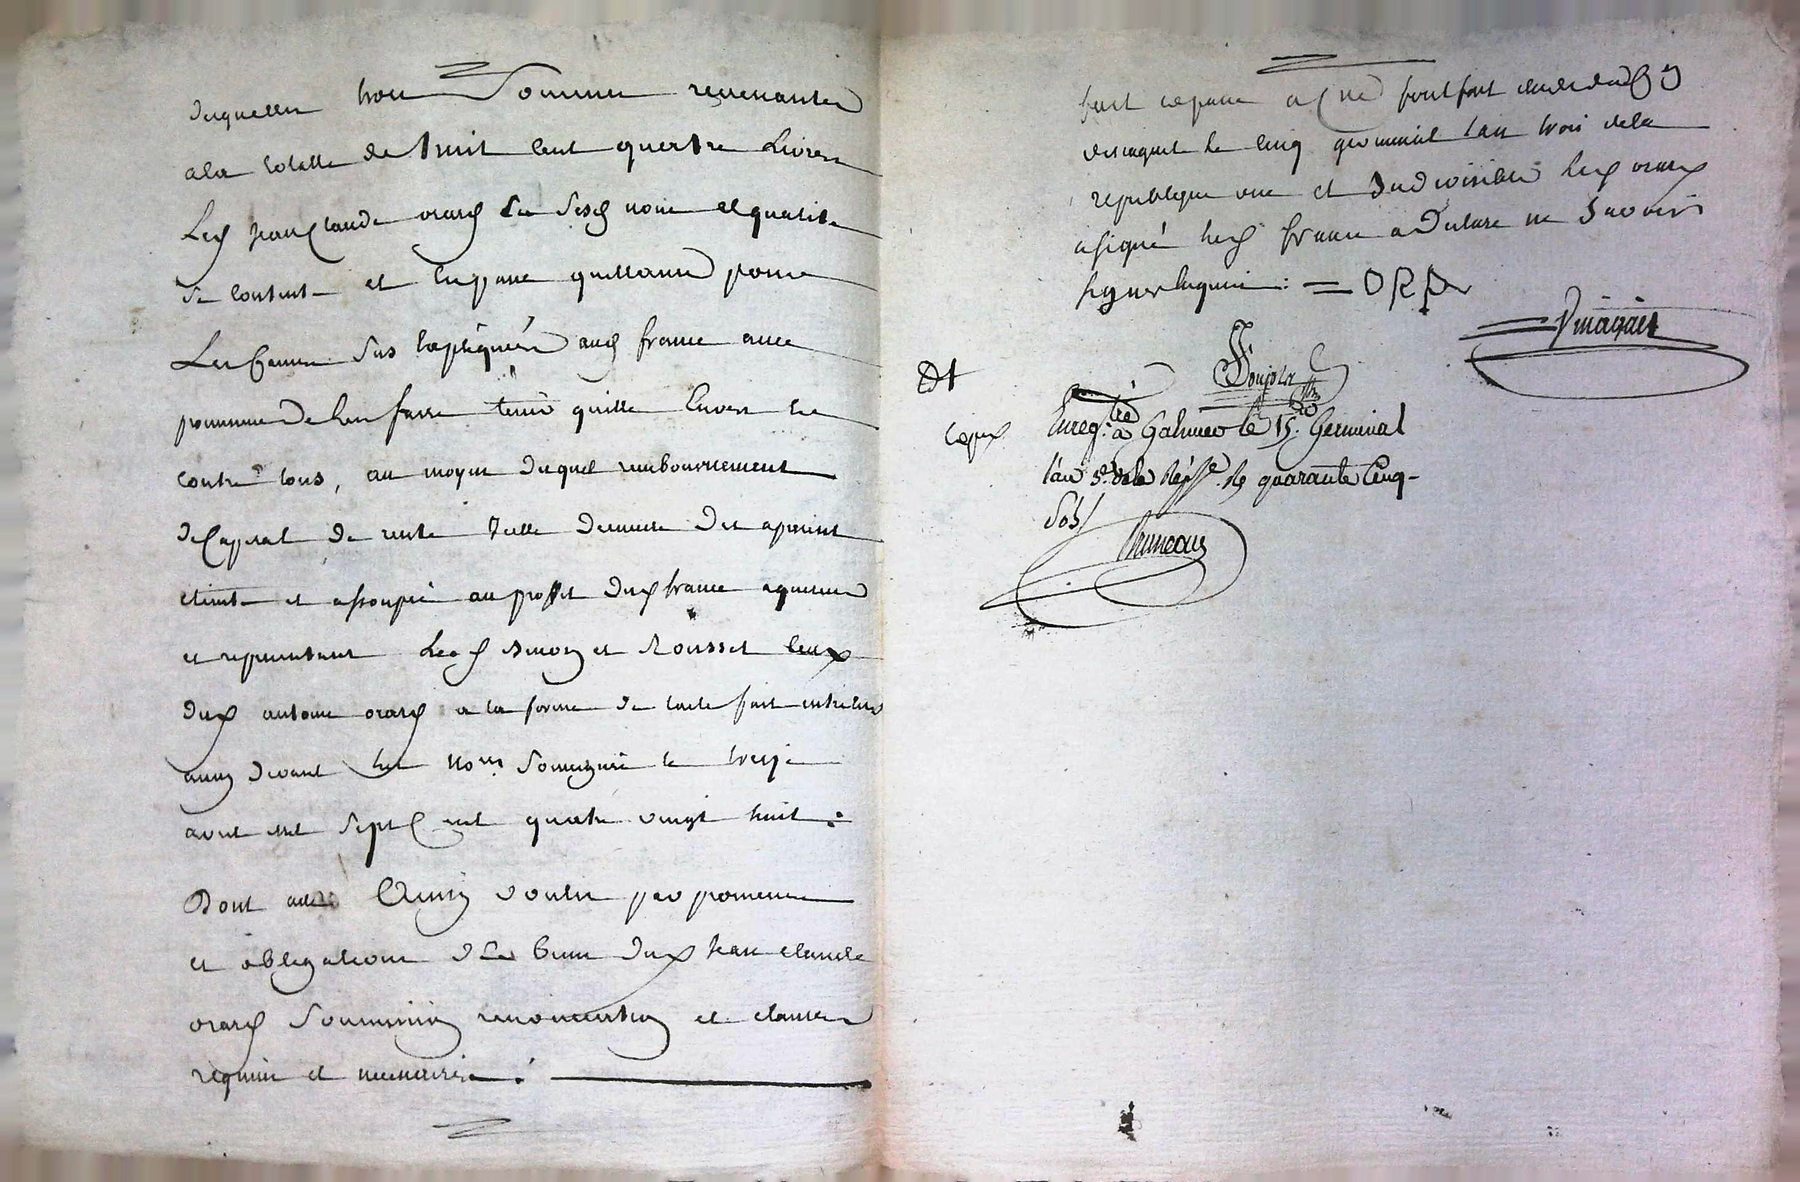 desquelles trois Sommes revenantes
a la totalle de huit Cent quatre Livres
Led Jean Claude orard en sesd nom et qualité
se contente et en passe quittance pour
Les Causes Sus Expliquées aud france avec
promesse de len faire tenir quitte Envers et
contre tous, au moyen duquel rembourcement
de Capital de rente Icelle demeure des apresent
eteinte et assoupie au proffit dud france acquereur
et representant Led Simon et Rousset Ceux
dud antoine orard a la forme de lacte fait entre eux
devant les no.res Soussignés le treize
aout mil Sept Cent quatre vingt huit :
Dont acte Ainsi voulu par promesse
et obligations de Les biens dud Jean Claude
orard Soumission renonciation et clauses
requise et necessaire :
fait et passé
le cinq germinal L'an trois de la
republique une et Indivisible Led orard
a signé led france a Déclaré ne Savoir
signer Enquis : = ORAr
Vinagair
Dt
Enreg.tré a Galmier le 15. Germinal
l'an 3.e de la Rép.e R. quarante Cinq-
Sols